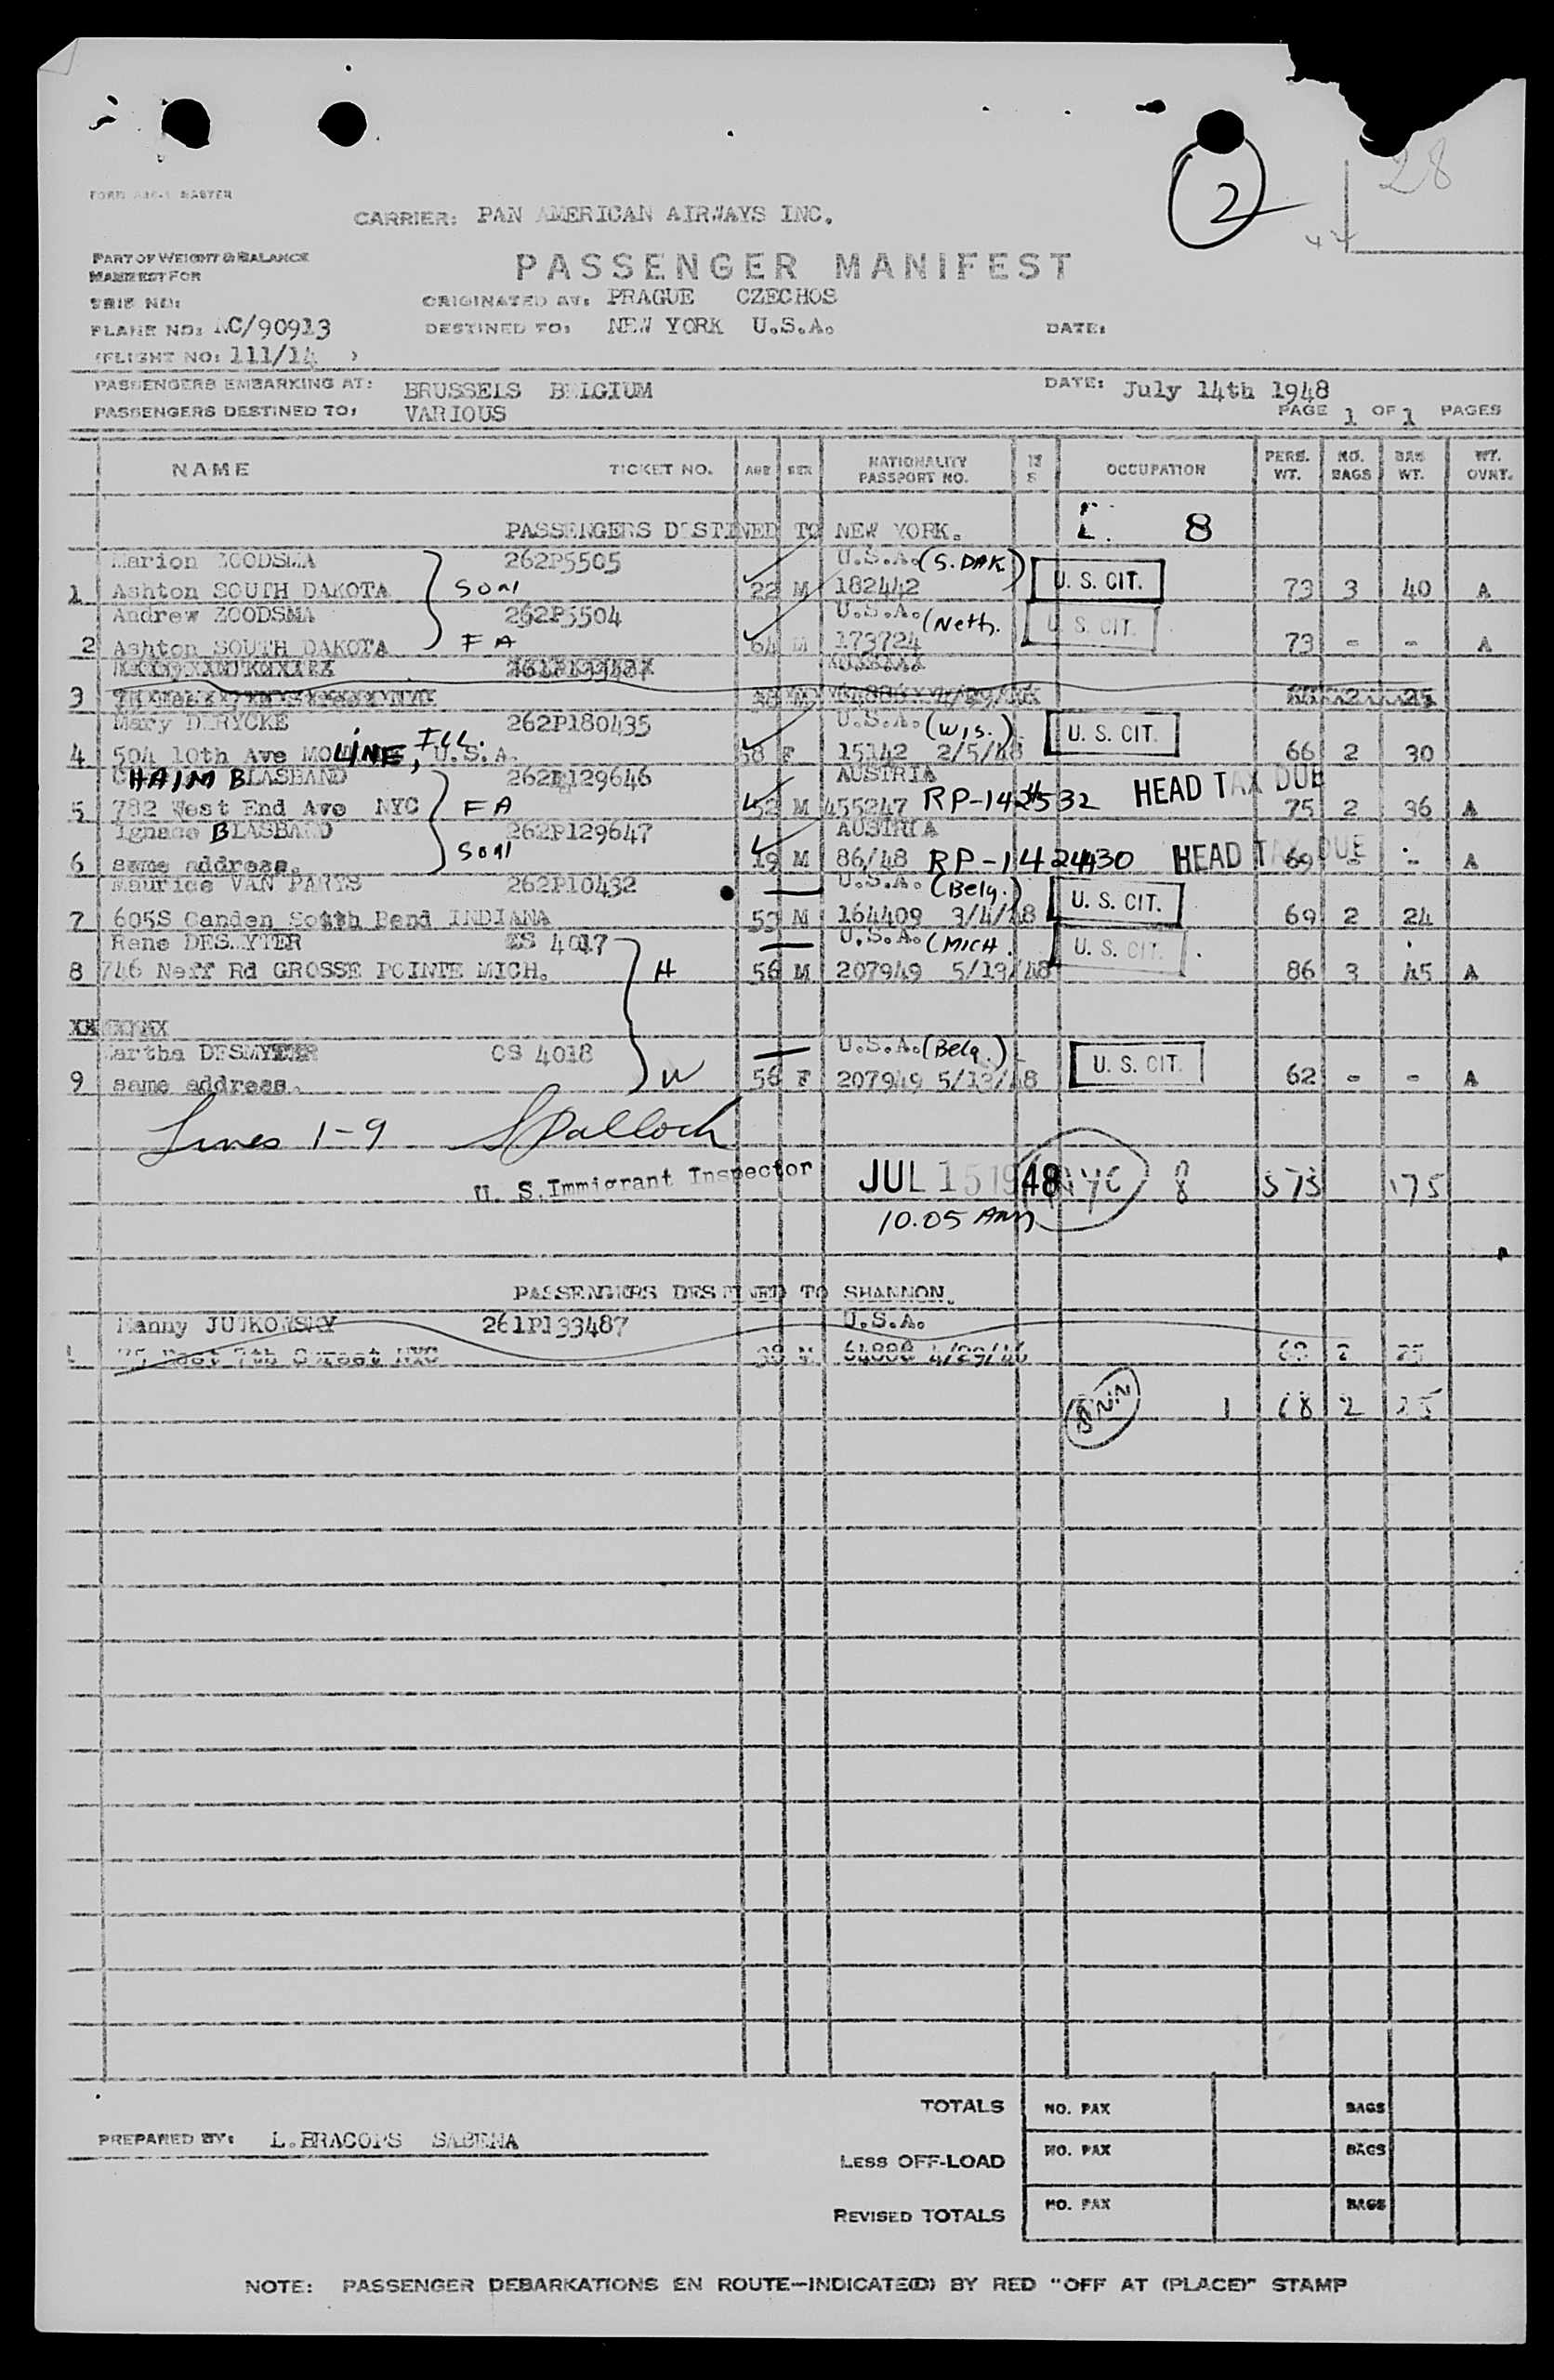 2
28
CARRIER: PAN AMERICAN AIRWAYS INC.
PART OF WEIGHT & BALANCE
MANIFEST FOR
PASSENGER MANIFEST
TRIP NO:
ORIGINATED AT: PRAGUE CZECHOS
PLANE NO: NC/90913
DESTINED TO: NEW YORK U.S.A.
DATE:
(FLIGHT NO: 111/14 )
PASSENGERS EMBARKING AT: BRUSSELS BELGIUM
DATE: July 14th 1948
PASSENGERS DESTINED TO: VARIOUS
PAGE 1 OF 1 PAGES
NAME TICKET NO. AGE SEX NATIONALITY PASSPORT NO. OCCUPATION PERS. WT. NO. BAGS BAG WT. WT. OVNT.
PASSENGERS DESTINED TO NEW YORK. 8
Marion ZOODSMA 262P5505 U.S.A. (S. DAK.)
1 Ashton SOUTH DAKOTA SON 22 M 182442 U. S. CIT. 73 3 40 A
Andrew ZOODSMA 262P5504 U.S.A. (Neth.
2 Ashton SOUTH DAKOTA FA 64 M 173724 U. S. CIT. 73 - - A
3
Mary DERYCKE 262P180435 U.S.A. (WIS.)
4 504 10th Ave MOLINE, ILL. U.S.A. 58 F 15142 2/5/48 U. S. CIT. 66 2 30
CHAIM BLASBAND 262P129646 AUSTRIA
5 782 West End Ave NYC FA 52 M 455247 RP-142532 HEAD TAX DUE 75 2 36 A
Ignace BLASBAND 262P129647 AUSTRIA
6 same address. SON 19 M 86/48 RP-1424430 HEAD TAX DUE 69 - - A
Maurice VAN PARYS 262P10432 U.S.A. (Belg.)
7 605S Camden South Bend INDIANA 53 M 164409 3/4/48 U. S. CIT. 69 2 24
Rene DESMYTER CS 4017 U.S.A. (MICH.
8 746 Neff Rd GROSSE POINTE MICH. H 56 M 207949 5/13/48 U. S. CIT. 86 3 45 A
Martha DESMYTER CS 4018 U.S.A. (Belg.)
9 same address. W 56 F 207949 5/13/48 U. S. CIT. 62 - - A
Lines 1-9 Pallock
U. S. Immigrant Inspector JUL 15 1948 NYC 8 573 175
10.05 AM
PASSENGERS DESTINED TO SHANNON.
Manny JUTKOWSKY 261P133487 U.S.A.
1 75 East 7th Street NYC 38 M 64888 4/29/46 68 2 25
SNN 1 68 2 25
TOTALS NO. PAX BAGS
PREPARED BY: L.BRACOPS SABENA
LESS OFF-LOAD NO. PAX BAGS
REVISED TOTALS NO. PAX BAGS
NOTE: PASSENGER DEBARKATIONS EN ROUTE—INDICATE(D) BY RED "OFF AT (PLACE)" STAMP